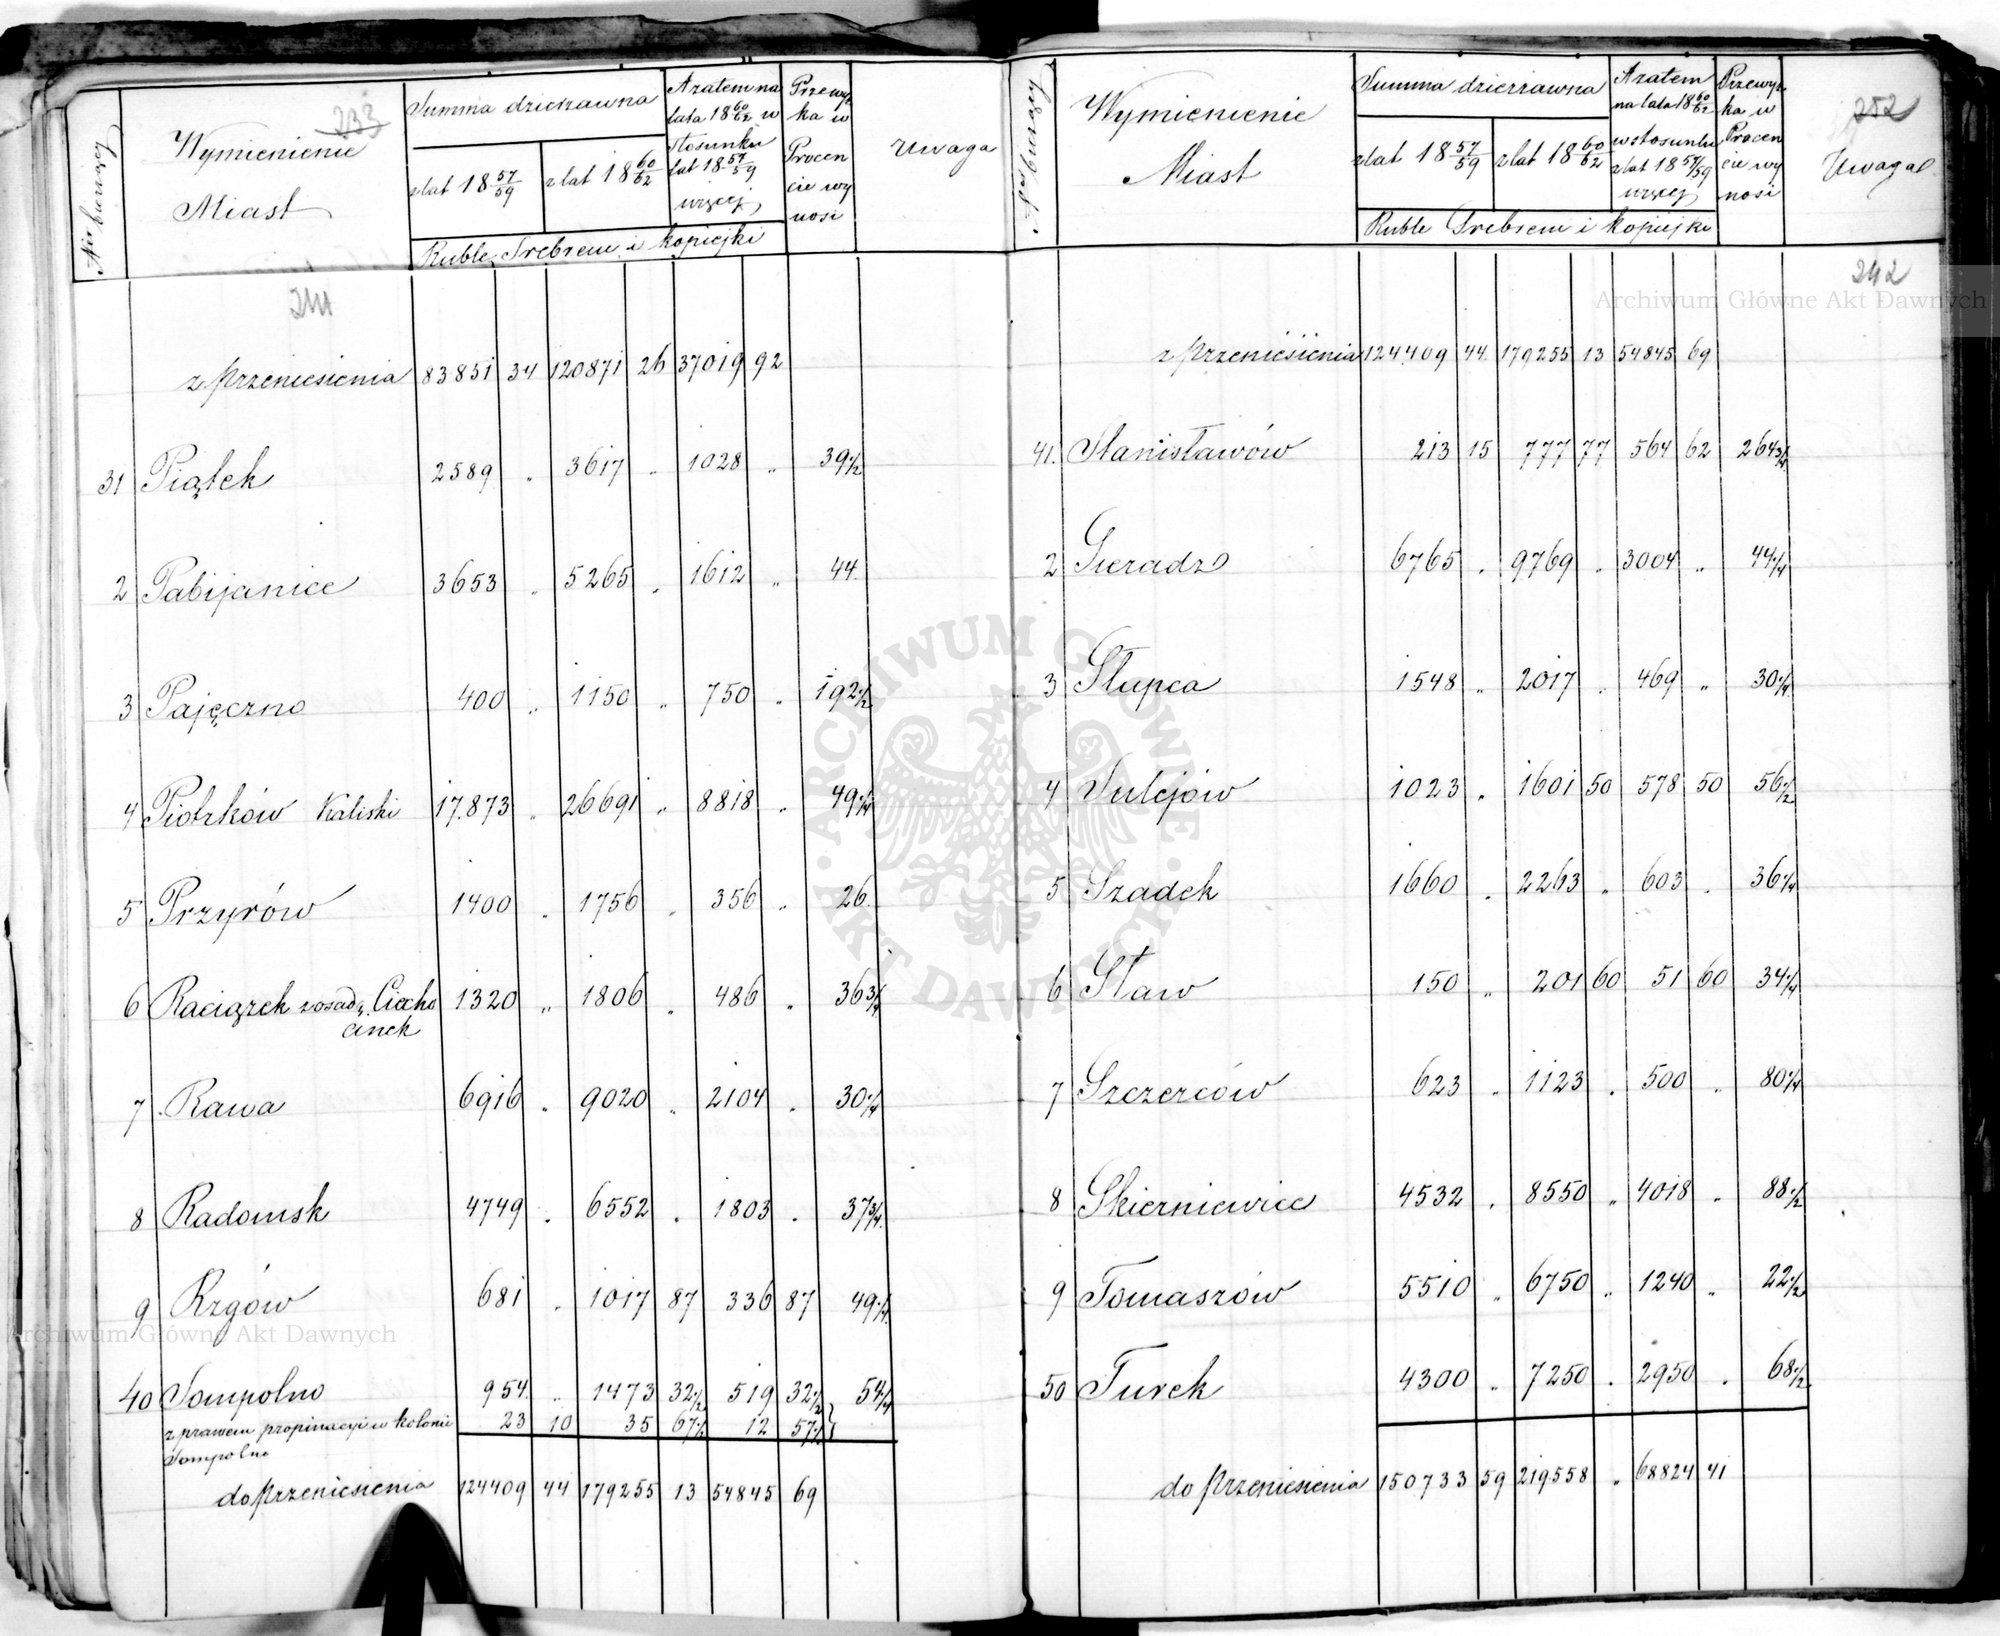 233
Nr bieżący
Wymienienie
Miast
Summa dzierżawna
z lat 18 57/59
z lat 18 60/62
A zatem na
lata 18 60/62 w
stosunku
lat 18 57/59
więcej
Ruble Srebrem i kopiejki
Przewyż
ka w
Procen
cie wy
nosi
Uwaga
241
z przeniesienia 83851 34 120871 26 37019 92
31 Piątek 2589 „ 3617 „ 1028 „ 39 1/2
2 Pabijanice 3653 „ 5265 „ 1612 „ 44.
3 Pajęczno 400 „ 1150 „ 750 „ 192 1/2
4 Piotrków Kaliski 17.873 „ 26691 „ 8818 „ 49 1/4
5 Przyrów 1400 „ 1756 „ 356 „ 26.
6 Raciążek z osadą Ciecho 1320 „ 1806 „ 486 „ 36 3/4
cinek
7 Rawa 6916 „ 9020 „ 2104 „ 30 1/4
8 Radomsk 4749 „ 6552 „ 1803 „ 37 3/4
9 Rzgów 681 „ 1017 87 336 87 49 1/4
40 Sompolno 954 „ 1473 32 1/2 519 32 1/2 54 1/4
z prawem propinacyi w kolonii 23 10 35 67 1/2 12 57 1/2
Sompolno
do przeniesienia 124409 44 179255 13 54845 69
Nr bieżący
Wymienienie
Miast
Summa dzierżawna
z lat 18 57/59
z lat 18 60/62
A zatem
na lata 18 60/62
w stosunku
z lat 18 57/59
więcej
Ruble Srebrem i kopiejki
Przewyż
ka w
Procen
cie wy
nosi
252
Uwaga
242
z przeniesienia 124409 44 179255 13 54845 69
41. Stanisławów 213 15 777 77 564 62 264 3/4
2 Sieradz 6765 „ 9769 „ 3004 „ 44 1/4
3 Słupca 1548 „ 2017 „ 469 „ 30 1/4
4 Sulejów 1023 „ 1601 50 578 50 56 1/2
5 Szadek 1660 „ 2263 „ 603 „ 36 1/4
6 Staw 150 „ 201 60 51 60 34 1/4
7 Szczerców 623 „ 1123 „ 500 „ 80 1/4
8 Skierniewice 4532 „ 8550 „ 4018 „ 88 1/2
9 Tomaszów 5510 „ 6750 „ 1240 „ 22 1/2
50 Turek 4300 „ 7250 „ 2950 „ 68 1/2
do przeniesienia 150733 59 219558 „ 68824 41
Archiwum Główne Akt Dawnych
Archiwum Główne Akt Dawnych
ARCHIWUM GŁÓWNE · AKT DAWNYCH ·